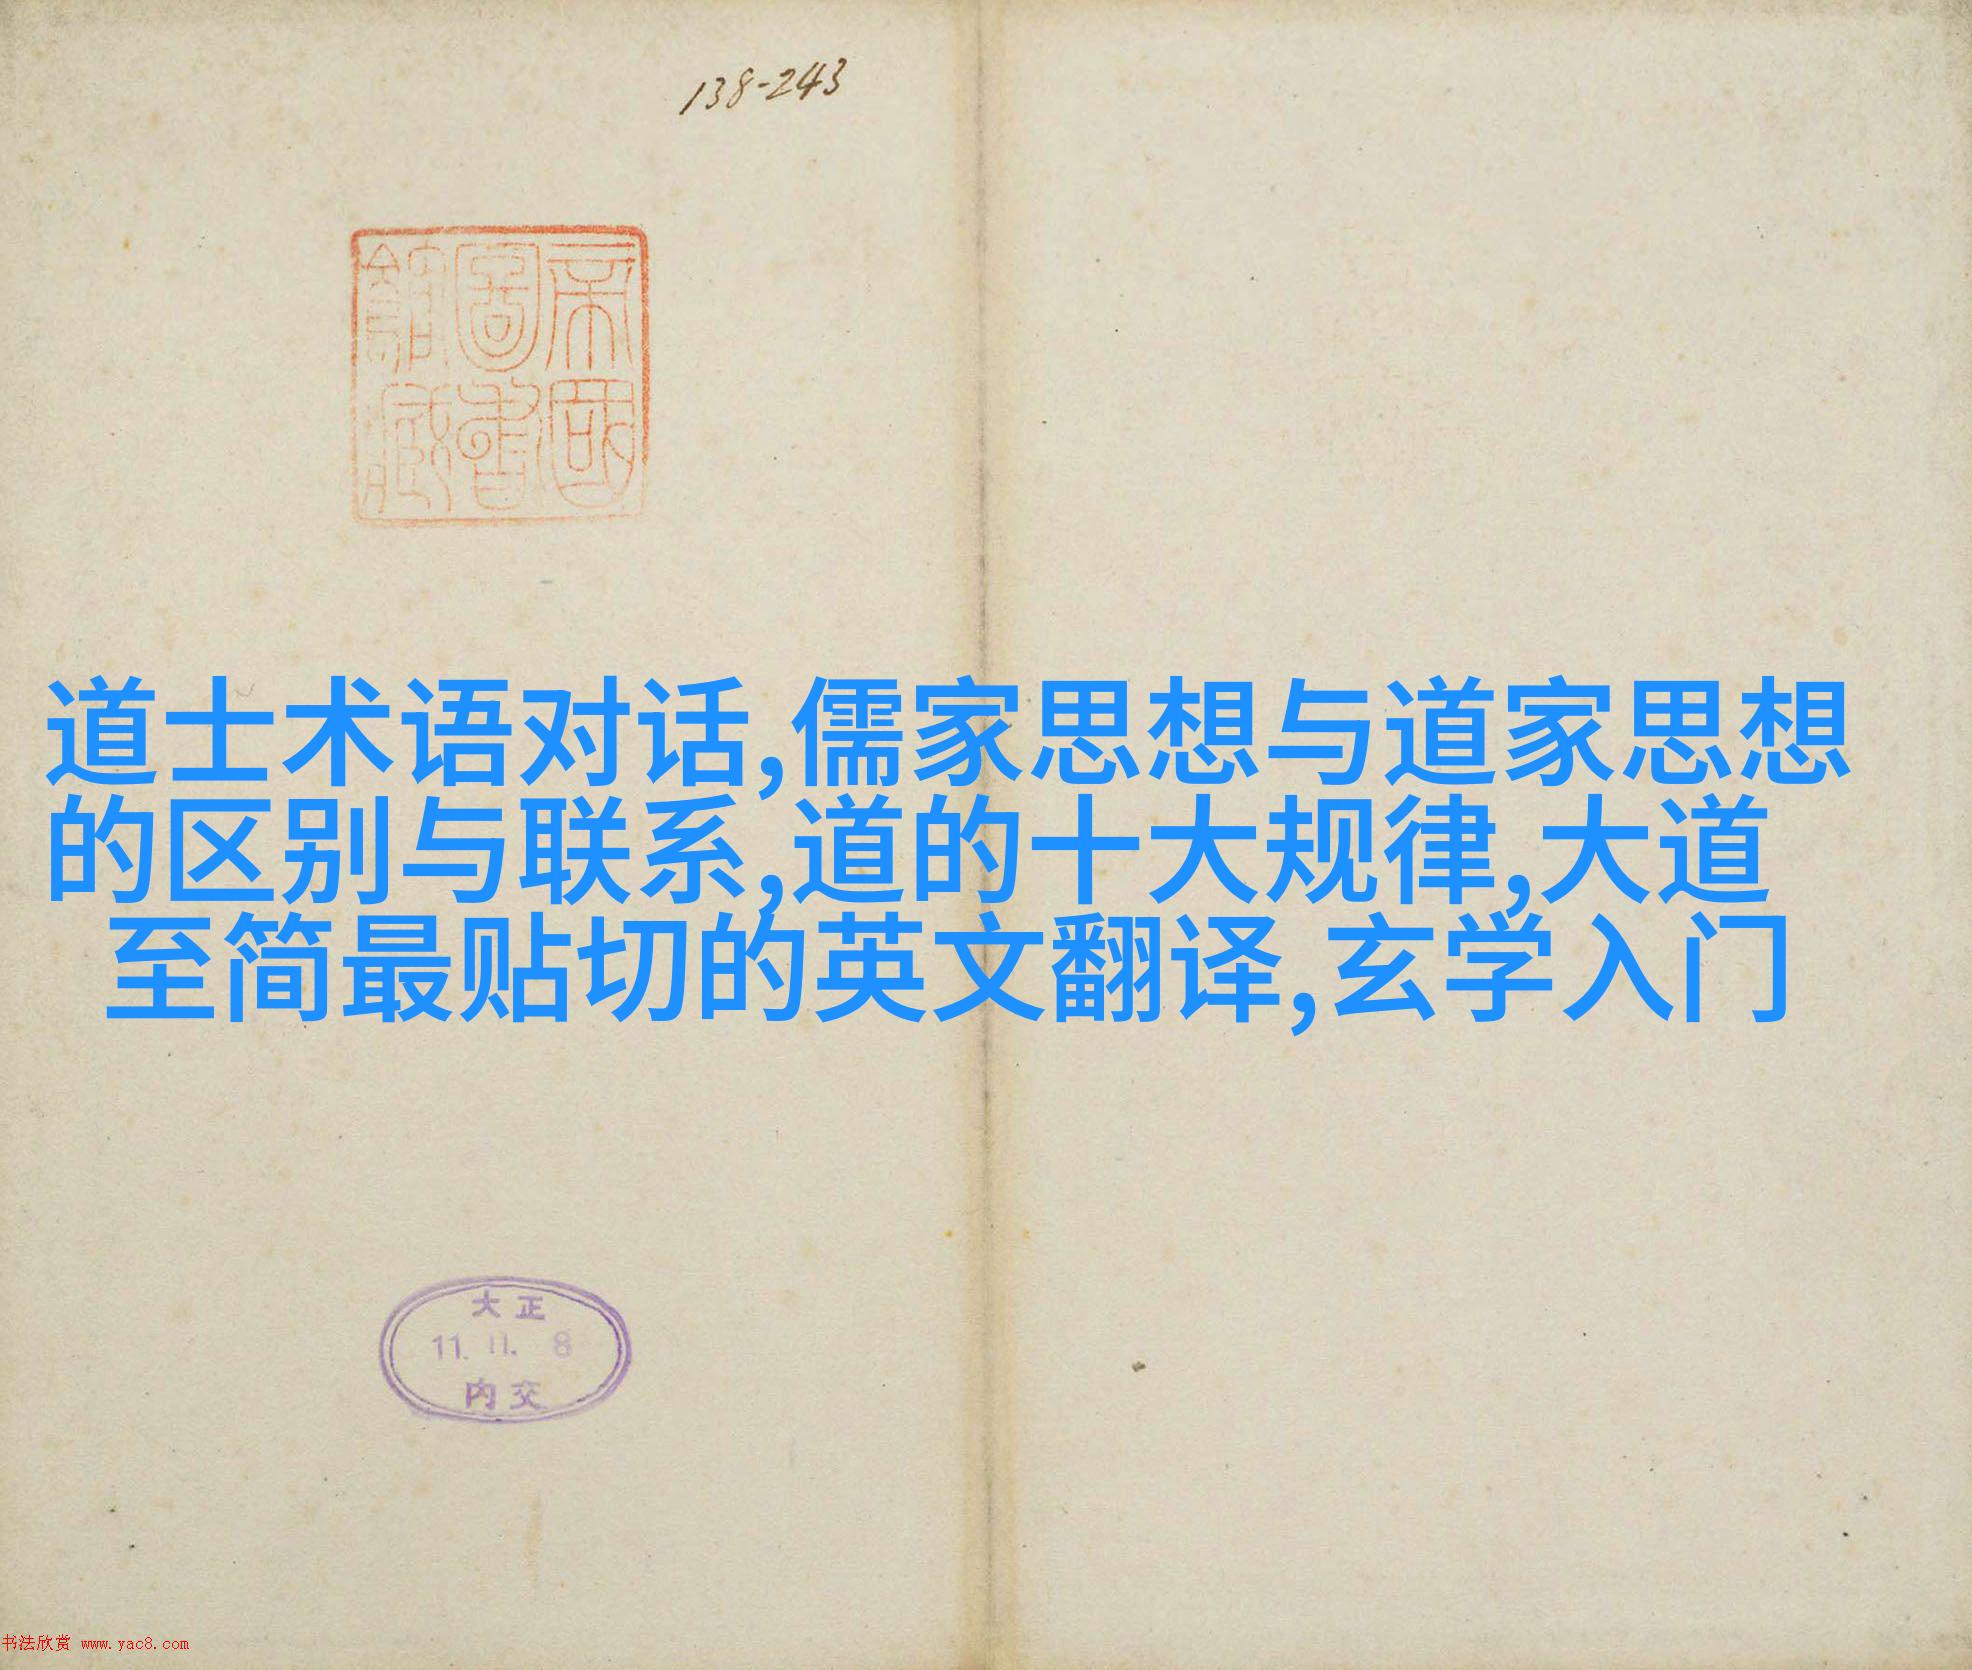 138-243
帝國
圖書
館藏
道士术语对话,儒家思想与道家思想
的区别与联系,道的十大规律,大道
至简最贴切的英文翻译,玄学入门
大正
11. 11. 8
内交
书法欣赏 www.yac8.com